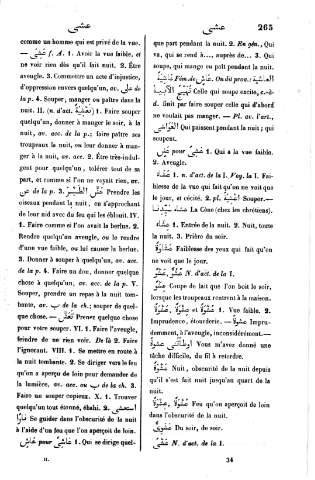 عشى
عشى
265
comme un homme qui est privé de la vue.
— عَشَى f. A. 1. Avoir la vue faible, et
ne voir rien dès qu'il fait nuit. 2. Être
aveugle. 3. Commettre un acte d'injustice,
d'oppression envers quelqu'un, av. على de
la p. 4. Souper, manger ou paître dans la
nuit. II. (n. d'act.) 1. Faire souper
quelqu'un, donner à manger le soir, à la
nuit, av. acc. de la p.; faire paître ses
troupeaux la nuit, ou leur donner à man-
ger à la nuit, av. acc. 2. Être très-indul-
gent pour quelqu'un, tolérer tout de sa
part, et comme si l'on ne voyait rien, av.
عن de la p. 3. Prendre les
oiseaux pendant la nuit, en s'approchant
de leur nid avec du feu qui les éblouit. IV.
1. Faire comme si l'on avait la berlue. 2.
Rendre quelqu'un aveugle, ou le rendre
d'une vue faible, ou lui causer la berlue.
3. Donner à souper à quelqu'un, av. acc.
de la p. 4. Faire un don, donner quelque
chose à quelqu'un, av. acc. de la p. V.
Souper, prendre un repas à la nuit tom-
bante, av. ب de la ch.; souper de quel-
que chose. — Prenez quelque chose
pour votre souper. VI. 1. Faire l'aveugle,
feindre de ne rien voir. De là 2. Faire
l'ignorant. VIII. 1. Se mettre en route à
la nuit tombante. 2. Se diriger vers le feu
qu'on a aperçu de loin pour demander de
la lumière, av. acc. ou ب de la ch. 3.
Faire un souper copieux. X. 1. Trouver
quelqu'un tout étonné, ébahi. 2. استعشى
نارًا Se guider dans l'obscurité de la nuit
à l'aide d'un feu que l'on aperçoit de loin.
عَاشٍ pour عَاشِىٌ 1. Qui se dirige quel-
II.
que part pendant la nuit. 2. En gén., Qui
va, qui se rend à..., auprès de... 3. Qui
soupe, qui mange ou paît pendant la nuit.
عَاشِيَةٌ Fém. de عَاشٍ. On dit prov.: العاشية
تهيج الآبية Celle qui soupe excite, c.-à-
d. finit par faire souper celle qui d'abord
ne voulait pas manger. — Pl. av. l'art.,
العَوَاشِى Qui paissent pendant la nuit; qui
soupent.
عَشٍ pour عَشِىٌ 1. Qui a la vue faible.
2. Aveugle.
عَشَاءٌ 1. n. d'act. de la I. Voy. la I. Fai-
blesse de la vue qui fait qu'on ne voit que
le jour, et cécité. 2. pl. أعشية Souper. —
عشاء سيّدنا La Cène (chez les chrétiens).
عِشَاءٌ 1. Entrée de la nuit. 2. Nuit, toute
la nuit. 3. Prière du soir.
عَشَاوَةٌ Faiblesse des yeux qui fait qu'on
ne voit que le jour.
عَشْوٌ, عُشُوٌّ N. d'act. de la I.
عُشْوٌ Coupe de lait que l'on boit le soir,
lorsque les troupeaux rentrent à la maison.
عَشْوَةٌ et عُشْوَةٌ, عِشْوَةٌ 1. Vue faible. 2.
Imprudence, étourderie. — عشوةً Impru-
demment, à l'aveugle, inconsidérément. —
أوطأتنى عشوةً Vous m'avez donné une
tâche difficile, dû fil à retordre.
عَشْوَةٌ Nuit, obscurité de la nuit depuis
qu'il s'est fait nuit jusqu'au quart de la
nuit.
عُشْوَةٌ, عِشْوَةٌ Feu qu'on aperçoit de loin
dans l'obscurité de la nuit.
عَشَوِىٌّ Du soir, de soir.
عَشْىٌ N. d'act. de la I.
34